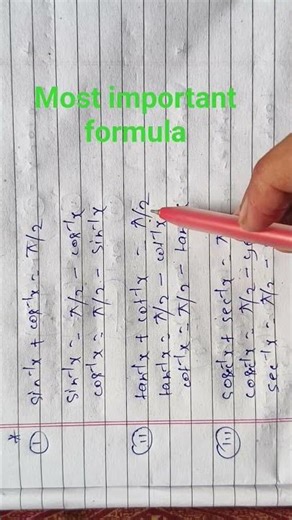 Most important
formula
*
(i) sin⁻¹x + cos⁻¹x = π/2
sin⁻¹x = π/2 - cos⁻¹x
cos⁻¹x = π/2 - sin⁻¹x
(ii) tan⁻¹x + cot⁻¹x = π/2
tan⁻¹x = π/2 - cot⁻¹x
cot⁻¹x = π/2 - tan
(iii) cosec⁻¹x + sec⁻¹x = π
cosec⁻¹x = π/2 - se
sec⁻¹x = π/2 -